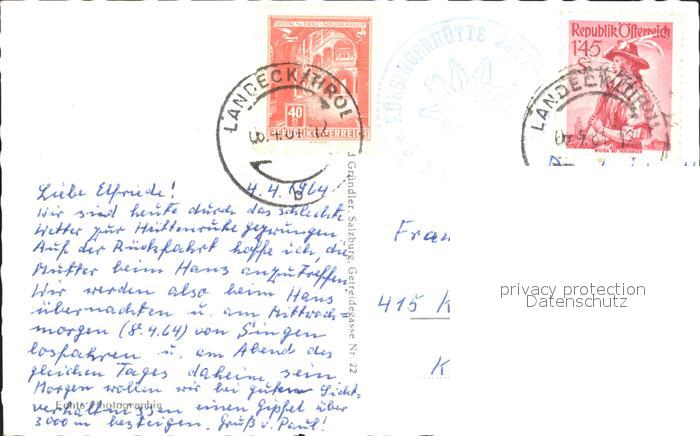 SPITTAL AN DER DRAU · SCHLOSS PORCIA
40
REPUBLIK ÖSTERREICH
LANDECK TIROL
b
KÜRSINGERHÜTTE
Republik Österreich
1'45
S
LANDECK
Liebe Elfriede! 4.4.1964
Wir sind heute durch das schlechte
Wetter zur Hüttenruhe gezwungen
Auf der Rückfahrt hoffe ich, die
Mutter beim Hans anzutreffen
Wir werden also beim Hans
übernachten u. am Mittwoch=
morgen (8.4.64) von Singen
losfahren u. am Abend des
gleichen Tages daheim sein
Morgen wollen wir bei gutem Sicht-
verhältnissen einen Gipfel über
3000 m besteigen. Gruß v. Paul!
Echte Photographie
Gründler, Salzburg, Getreidegasse Nr. 22
Frau
415 K
K
privacy protection
Datenschutz